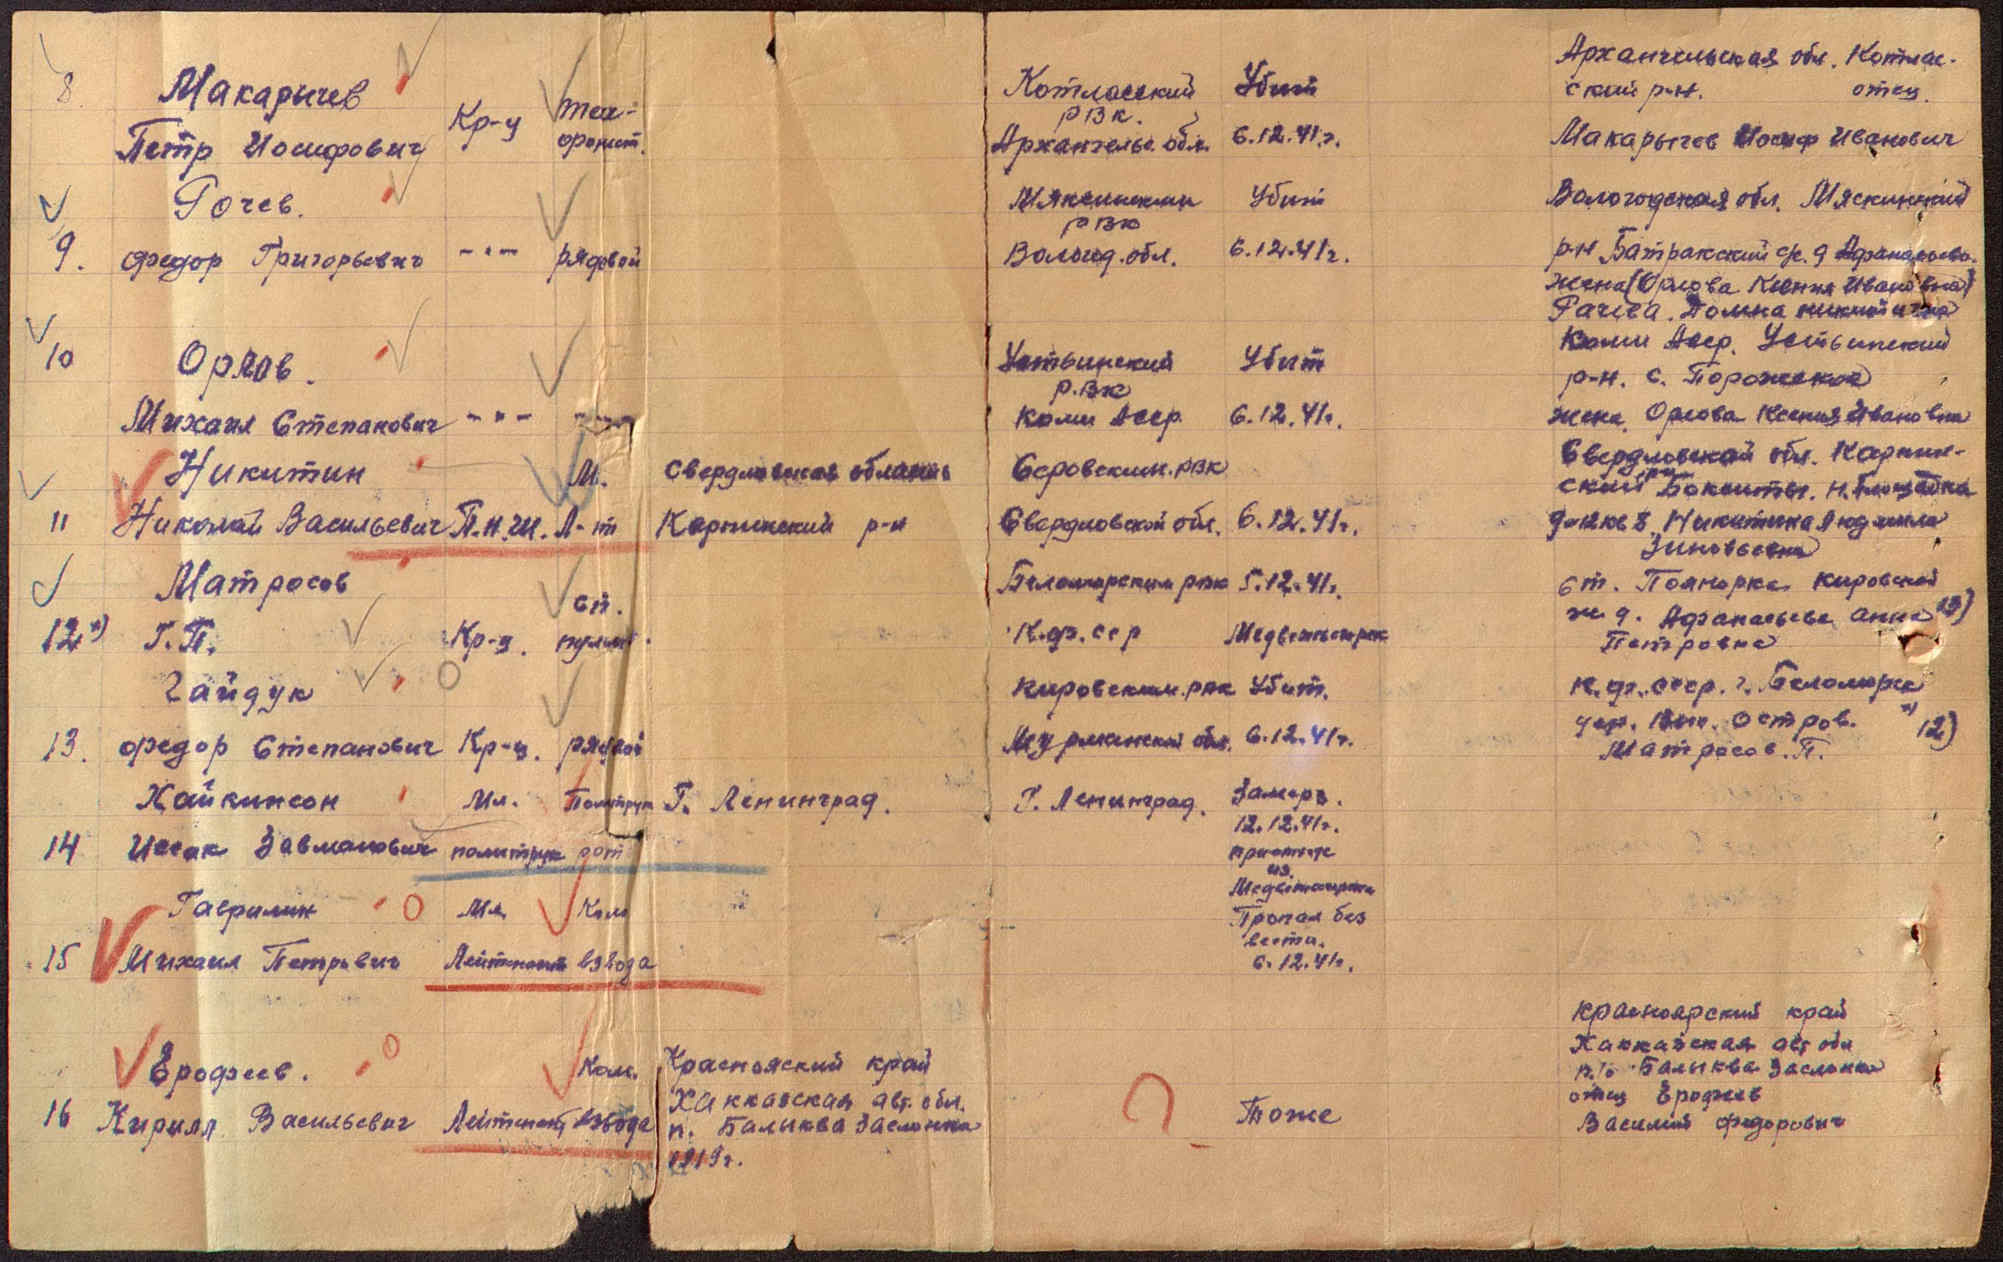 8. Макарычев
Петр Иосифович
Кр-ц
Котласский
рвк.
Архангельс. обл.
Убит
6.12.41г.
Архангельская обл. Котлас-
ский р-н. отец
Макарычев Иосиф Иванович
9. Рочев.
федор Григорьевич
-"-
рядовой
Мяксинский
рвк
Вологод. обл.
Убит
6.12.41г.
Вологодская обл. Мяскинский
р-н Батракский с/с. д
жена (Орлова Ксения Ивановна)
Домна
10 Орлов.
Михаил Степанович
-"-
-"-
Устьинский
р.вк
Коми Асср
Убит
6.12.41г.
Коми Асср. Устьинский
р-н. с. Порожское
жена Орлова Ксения Ивановна
11 Никитин
Николай Васильевич
П.Н.Ш.
М.
Л-т
Свердловская область
Карпинский р-н
Серовским. рвк
Свердловской обл.
6.12.41г.
Свердловской обл. Карпин-
ский
Никитина Людмила
Зиновьевна
12*) Матросов
Г.П.
Кр-ц.
ст.
пулем.
Беломорским рвк
К.ф.сср
5.12.41г.
ст. Кировской
ж.д. Афанасьева Анна 13)
Петровна
13. Гайдук
федор Степанович
Кр-ц.
рядовой
Кировским. рвк
Мурманской обл.
Убит.
6.12.41г.
К.ф.сср. г. Беломорск
Остров. *) 12)
Матросов. П.
14 Хайкинсон
Исак Завманович
Мл.
политрук
Политрук
рот
Г. Ленинград.
Г. Ленинград.
Замерз.
12.12.41г.
из
15 Гаврилин
Михаил Петрович
Мл.
Лейтенант
Ком
взвода
Пропал без
вести.
6.12.41г.
16 Ерофеев.
Кирилл Васильевич
Лейтенант
Ком.
взвода
Краснояский край
Хаккаская авт. обл.
п. Балыква Заслонка
1919г.
?
Тоже
Красноярский край
Хаккаская авт обл
п/о Балыква Заслонка
отец Ерофеев
Василий Федорович